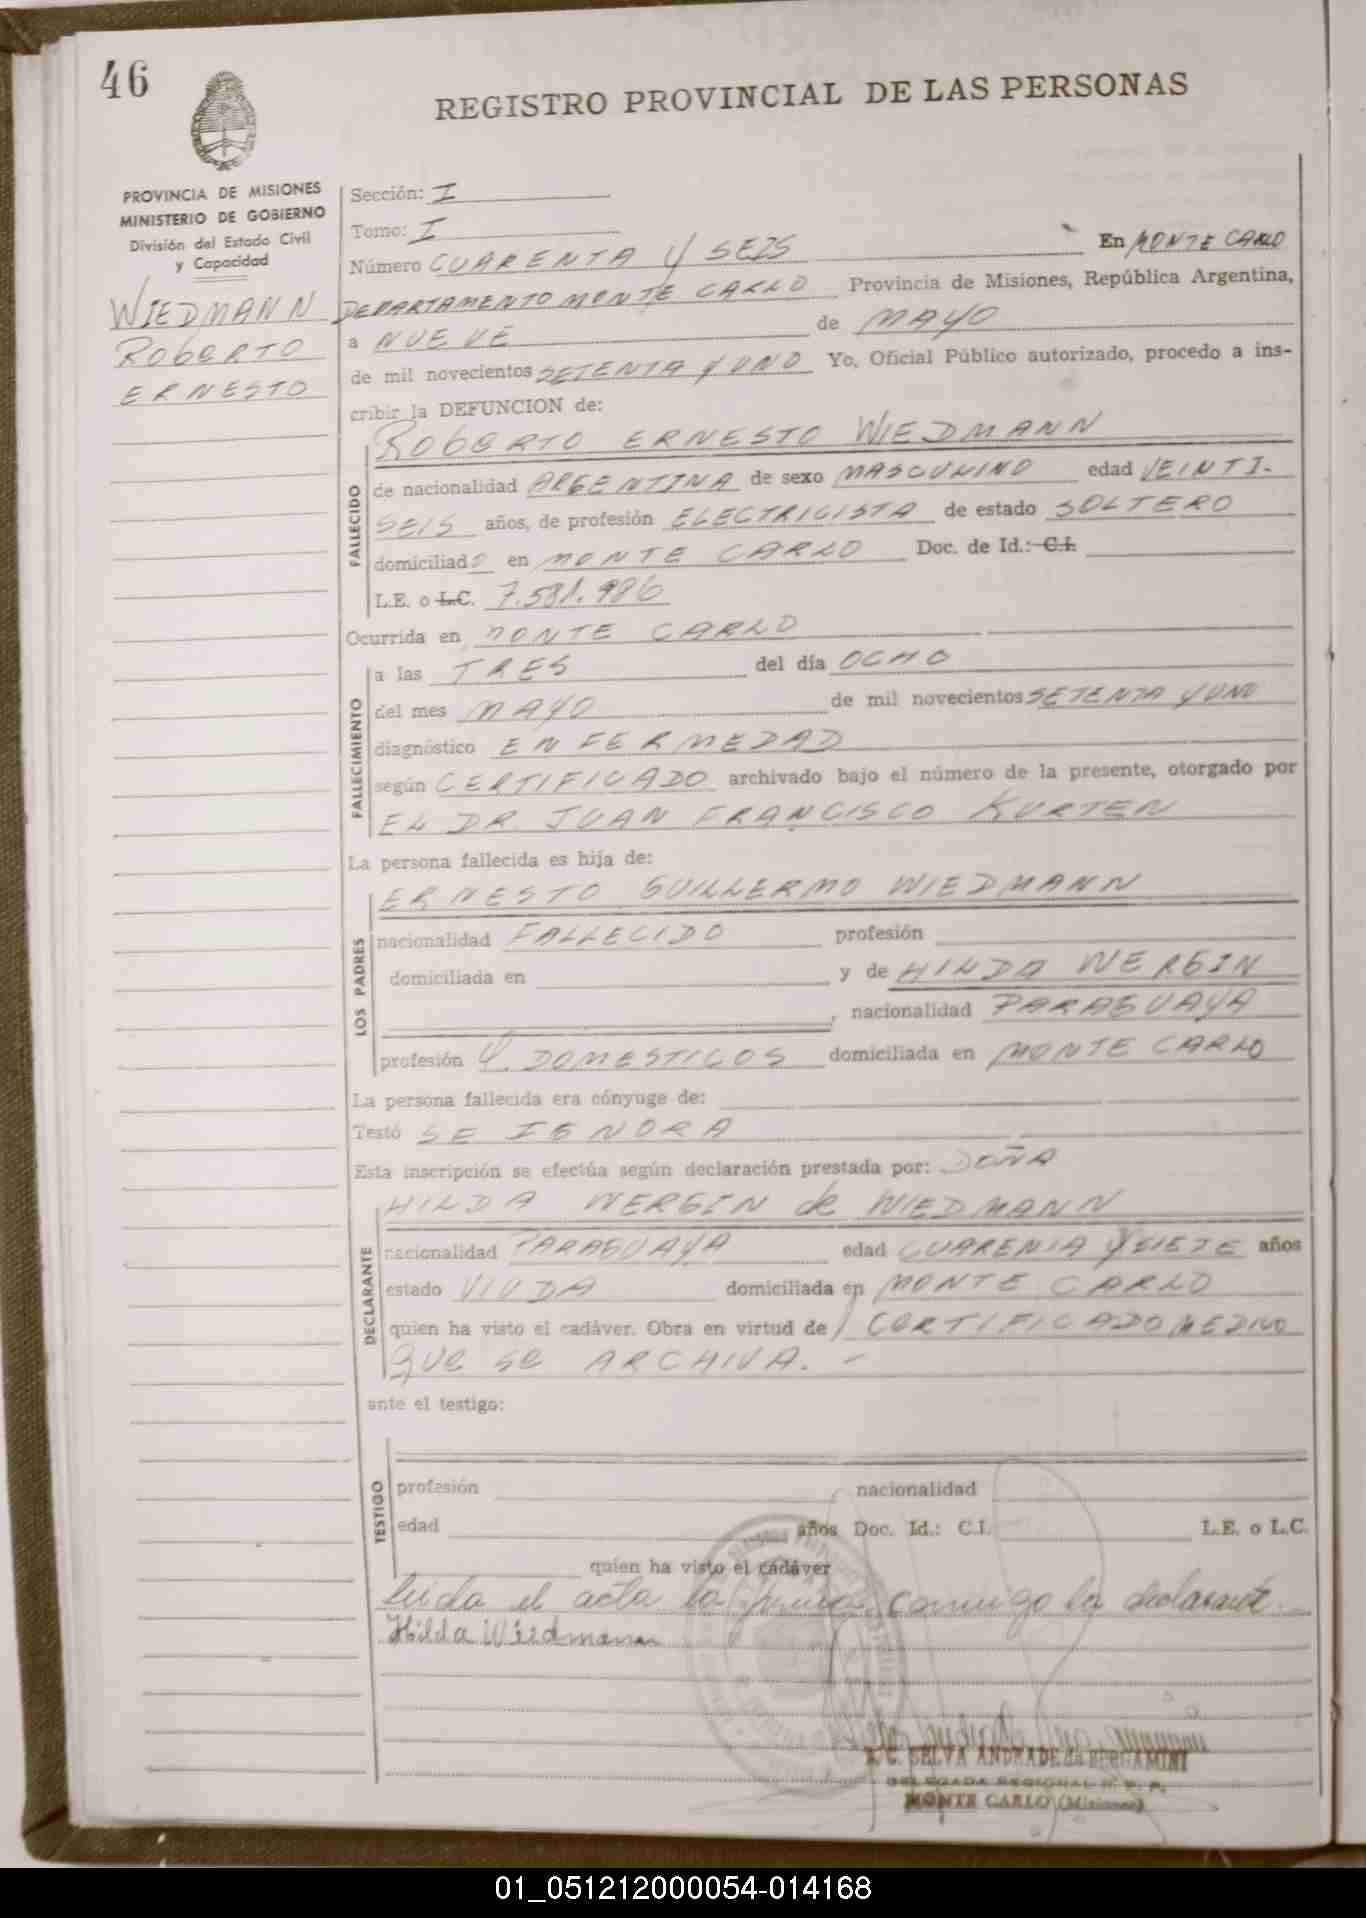 46
REGISTRO PROVINCIAL DE LAS PERSONAS
PROVINCIA DE MISIONES
MINISTERIO DE GOBIERNO
División del Estado Civil
y Capacidad
WIEDMANN
ROBERTO
ERNESTO
Sección: I
Tomo: I
Número CUARENTA Y SEIS En MONTE CARLO
DEPARTAMENTO MONTE CARLO Provincia de Misiones, República Argentina,
a NUEVE de MAYO
de mil novecientos SETENTA Y UNO Yo, Oficial Público autorizado, procedo a ins-
cribir la DEFUNCION de:
ROBERTO ERNESTO WIEDMANN
FALLECIDO
de nacionalidad ARGENTINA de sexo MASCULINO edad VEINTI-
SEIS años, de profesión ELECTRICISTA de estado SOLTERO
domiciliado en MONTE CARLO Doc. de Id.: C.I.
L.E. o L.C. 7.581.986
Ocurrida en MONTE CARLO
FALLECIMIENTO
a las TRES del día OCHO
del mes MAYO de mil novecientos SETENTA Y UNO
diagnóstico ENFERMEDAD
según CERTIFICADO archivado bajo el número de la presente, otorgado por
EL DR. JUAN FRANCISCO KURTEN
La persona fallecida es hija de:
ERNESTO GUILLERMO WIEDMANN
LOS PADRES
nacionalidad FALLECIDO profesión
domiciliada en y de HILDA WERGIN
, nacionalidad PARAGUAYA
profesión Q. DOMESTICOS domiciliada en MONTE CARLO
La persona fallecida era cónyuge de:
Testó SE IGNORA
Esta inscripción se efectúa según declaración prestada por: DOÑA
HILDA WERGIN de WIEDMANN
DECLARANTE
nacionalidad PARAGUAYA edad CUARENTA Y SIETE años
estado VIUDA domiciliada en MONTE CARLO
quien ha visto el cadáver. Obra en virtud de CERTIFICADO MEDICO
QUE SE ARCHIVA. -
ante el testigo:
TESTIGO
profesión nacionalidad
edad años Doc. Id.: C.I. L.E. o L.C.
quien ha visto el cadáver
Leída el acta la firma conmigo la declarante.
Hilda Wiedmann
SELVA ANDRADE de BERGAMINI
DELEGADA REGIONAL R. P. P.
MONTE CARLO (Misiones)
01_051212000054-014168